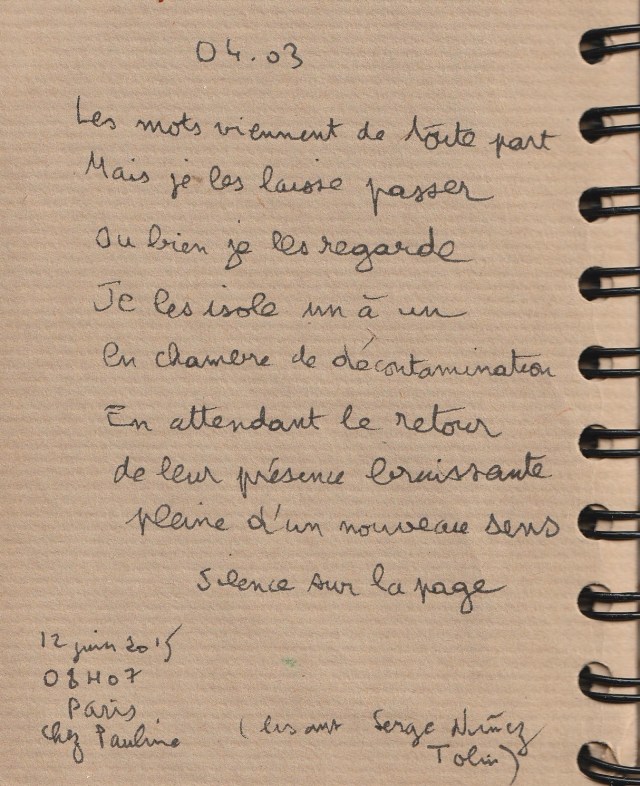 04.03
Les mots viennent de toute part
Mais je les laisse passer
Ou bien je les regarde
Je les isole un à un
En chambre de décontamination
En attendant le retour
de leur présence bruissante
pleine d'un nouveau sens
Silence sur la page
12 juin 2015
08H07
Paris
Chez Pauline
(lisant Serge Nuñez
Tolin)